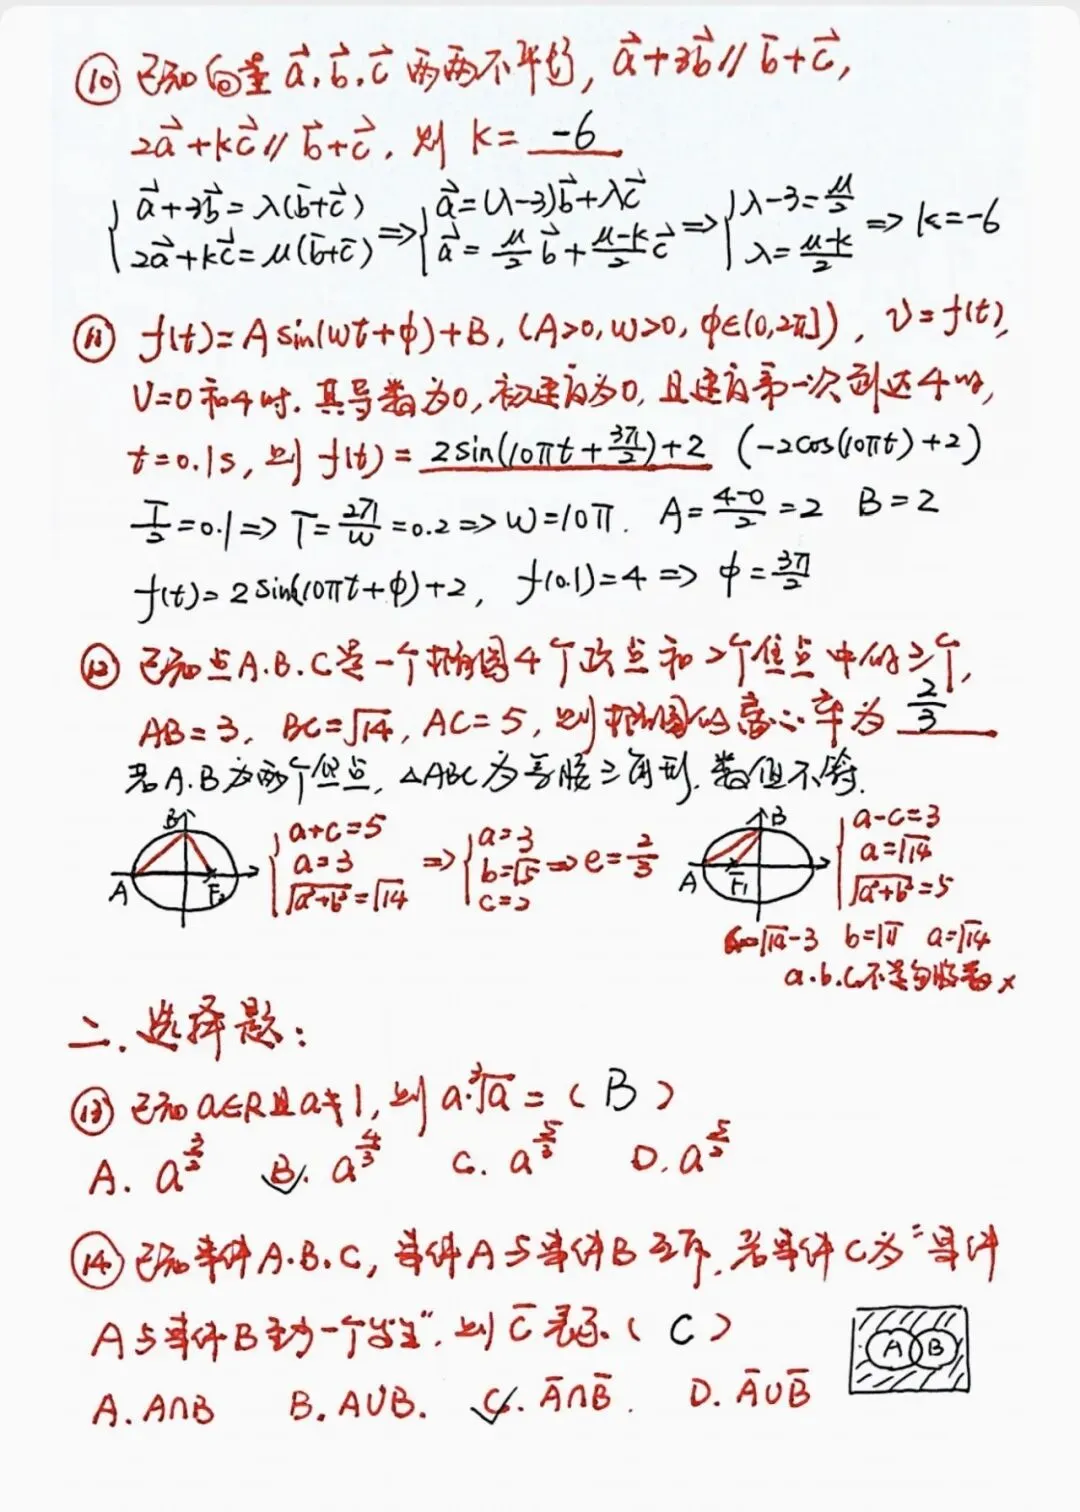 ⑩ 已知向量 a⃗, b⃗, c⃗ 两两不平行, a⃗+3b⃗ // b⃗+c⃗,
2a⃗+kc⃗ // b⃗+c⃗, 则 k= -6
{a⃗+3b⃗=λ(b⃗+c⃗) 2a⃗+kc⃗=μ(b⃗+c⃗) ⇒ {a⃗=(λ-3)b⃗+λc⃗ a⃗=μ/2 b⃗+(μ-k)/2 c⃗ ⇒ {λ-3=μ/2 λ=(μ-k)/2 ⇒ k=-6
⑪ f(t)=A sin(wt+φ)+B, (A>0, w>0, φ∈(0,2π]), v=f(t),
V=0和4时. 其导数为0, 初速度为0, 且速度第一次到达4时,
t=0.1s, 则 f(t)= 2sin(10πt+3π/2)+2 (-2cos(10πt)+2)
T/2=0.1 ⇒ T=2π/w=0.2 ⇒ w=10π. A=(4-0)/2=2 B=2
f(t)=2sin(10πt+φ)+2, f(0.1)=4 ⇒ φ=3π/2
⑫ 已知点A.B.C是一个椭圆4个顶点和2个焦点中的三个,
AB=3, BC=√14, AC=5, 则椭圆的离心率为 2/3
若A.B为两个焦点, △ABC为等腰三角形, 数值不符.
B A F₂ {a+c=5 a=3 √(a²+b²)=√14 ⇒ {a=3 b=√5 c=2 ⇒ e=2/3
B A F₁ {a-c=3 a=√14 √(a²+b²)=5
c=√14-3 b=√11 a=√14
a.b.c不是勾股数 ×
二. 选择题:
⑬ 已知a∈R且a≠1, 则 a·³√a = ( B )
A. a^(3/2) B. a^(4/3) C. a^(5/3) D. a^(5/2)
⑭ 已知事件A.B.C, 事件A与事件B互斥, 若事件C为"事件
A与事件B至少一个发生", 则 C̄ 表示. ( C )
A B
A. A∩B B. A∪B. C. Ā∩B̄. D. Ā∪B̄